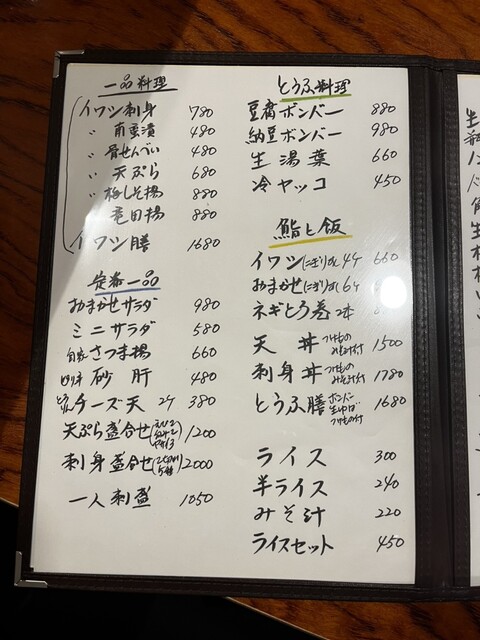 一品料理
イワシ刺身 780
〃 南蛮漬 480
〃 骨せんべい 480
〃 天ぷら 680
〃 梅しそ揚 880
〃 竜田揚 880
イワシ膳 1680
定番一品
おまかせサラダ 980
ミニサラダ 580
自家 さつま揚 660
砂肝 480
チーズ天 2ケ 380
天ぷら盛合せ 1200
刺身盛合せ 2000
一人刺盛 1050
とうふ料理
豆腐ボンバー 880
納豆ボンバー 980
生湯葉 660
冷ヤッコ 450
鮨と飯
イワシにぎり 4ケ 660
おまかせにぎり 6ケ
ネギとろ巻 2本
天丼 つけもの みそ汁付 1500
刺身丼 つけもの みそ汁付 1780
とうふ膳 ボンバー 生ゆば つけもの付 1680
ライス 300
半ライス 240
みそ汁 220
ライスセット 450